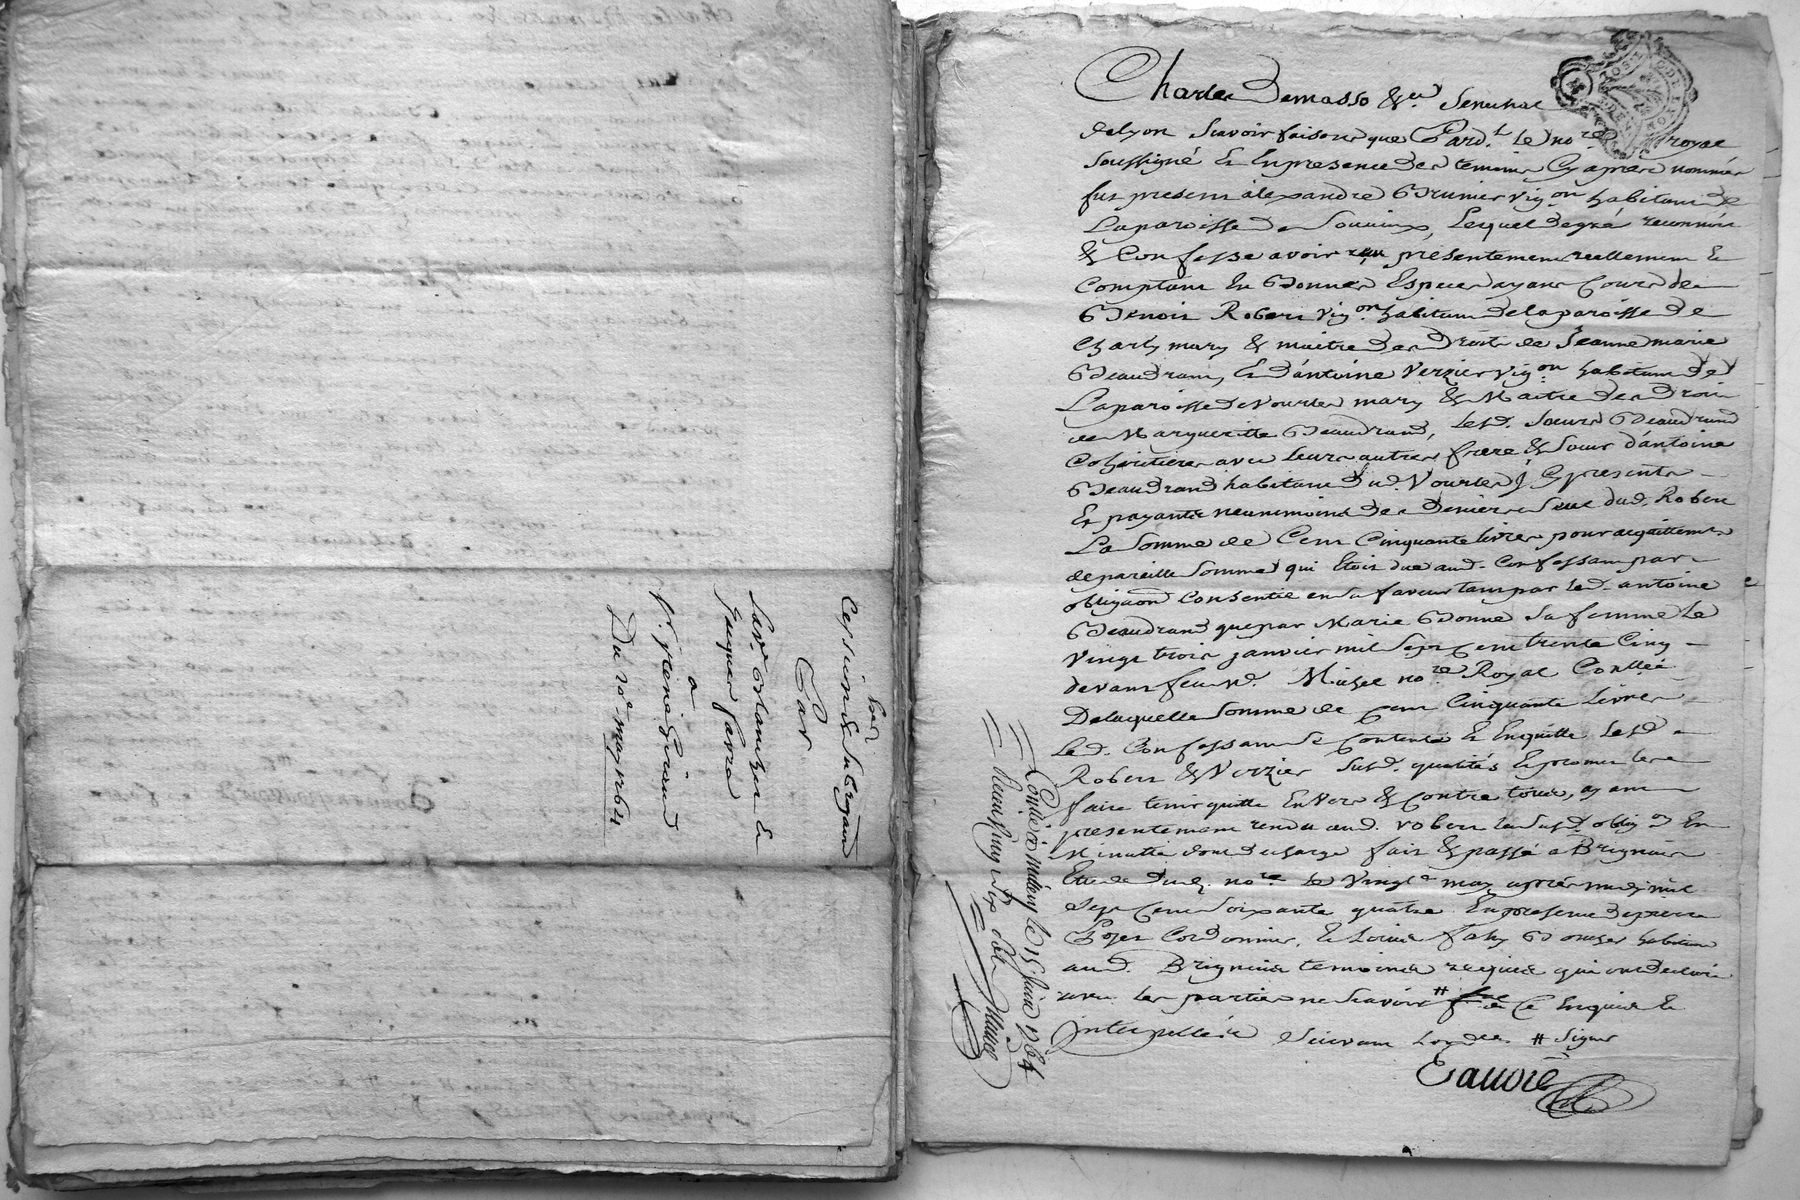 Cession & subrogaõn
Par
Jacques Favre
a
Sr. piene Giraud
Du 20e may 1764
Charles Demasso &ca. Senechal
delyon Scavoir faisons que Pard.t le nore royal
Soussigné & En presence des temoins Cy apres nommés
fut present alexandre Brunier vigon habitant de
Laparoisse de Soucieux, Lequel de gré reconnoit
& Confesse avoir reçu presentement reellement &
Comptant En Bonnes Especes ayant Cours de
Benoit Robert vigon habitant de laparoisse de
Charly mary & maitre des Droits de Jeanne marie
Beaudrand, & d'antoine Verzier vigon habitant de
Laparoisse de Vourles mary & Maitre des Droits
de Marguerite Beaudrand, lesd. soeurs Beaudrand
Coheritieres avec leurs autres frere & soeur d'antoine
Beaudrand habitant dud. Vourles Cy presents
Et payants neanmoins des deniers seul dud. Robert
La somme de Cent Cinquante livres pour acquittement
de pareille somme qui Etoit due aud. Confessant par
obligaon Consentie en sa faveur tant par led. antoine
Beaudrand que par Marie Bonne sa femme le
vingt trois janvier mil sept cent trente Cinq
devant feu Md. nore Royal Conllée
De laquelle somme de Cent Cinquante Livres
led. Confessant se Contente & En quitte lesd.
Robert & Verzier susd. qualités & promet les
faire tenir quitte Envers & Contre tous, ayant
presentement rendu aud. robert la susd. oblig.on En
Minutte dont decharge fait & passé a Brignais
Etude dud. nore le vingte may aprés midy mil
sept Cent soixante quatre En presence de pierre
Cordonnier, & Louis Boulanger habitant
aud. Brignais temoins requis qui ont declaré
avec les parties ne scavoir # de Ce Enquis &
interpellés suivant L'ordce. # signer
Conllé a Millery le 15 Juin 1764